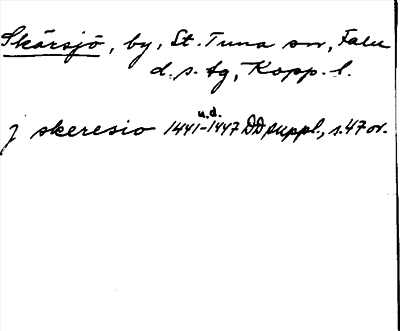 Skärsjö, by, St. Tuna sn, Falu
d. s. tg, Kopp. l.
u.d.
j skeresio 1441-1447 DD suppl., s. 47 or.